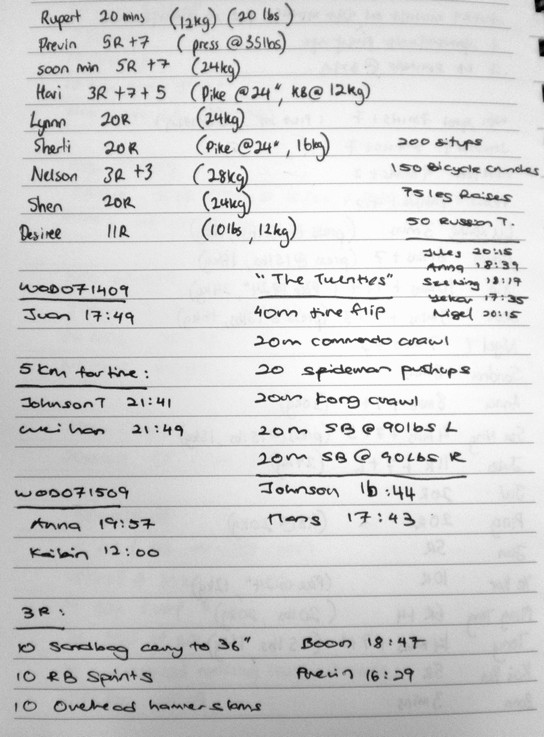 Rupert 20 mins (12kg) (20 lbs)
Previn 5R+7 (press @ 35lbs)
soon min 5R +7 (24kg)
Hari 3R +7+5 (Pike @ 24", KB @ 12kg)
Lynnn 20R (24kg)
Sherli 20R (Pike @ 24", 16kg)
Nelson 3R +3 (28kg)
Shen 20R (24kg)
Desiree 11R (10lbs, 12kg)
200 situps
150 Bicycle crunches
75 leg Raises
50 Russian T.
Jules 20:15
Anna 18:39
See King 18:19
Yekai 17:35
Nigel 20:15
WOD071409
Juan 17:49
5 km for time:
Johnson T 21:41
Wei han 21:49
WOD071509
Anna 19:57
Kaibin 12:00
"The Twenties"
40m tire flip
20m commando crawl
20 spiderman pushups
20m kong crawl
20m SB @ 90lbs L
20m SB @ 90Lbs R
Johnson 16:44
Mans 17:43
3R:
10 Sandbag carry to 36"
10 RB Sprints
10 Overhead hammer slams
Boon 18:47
Previn 16:29